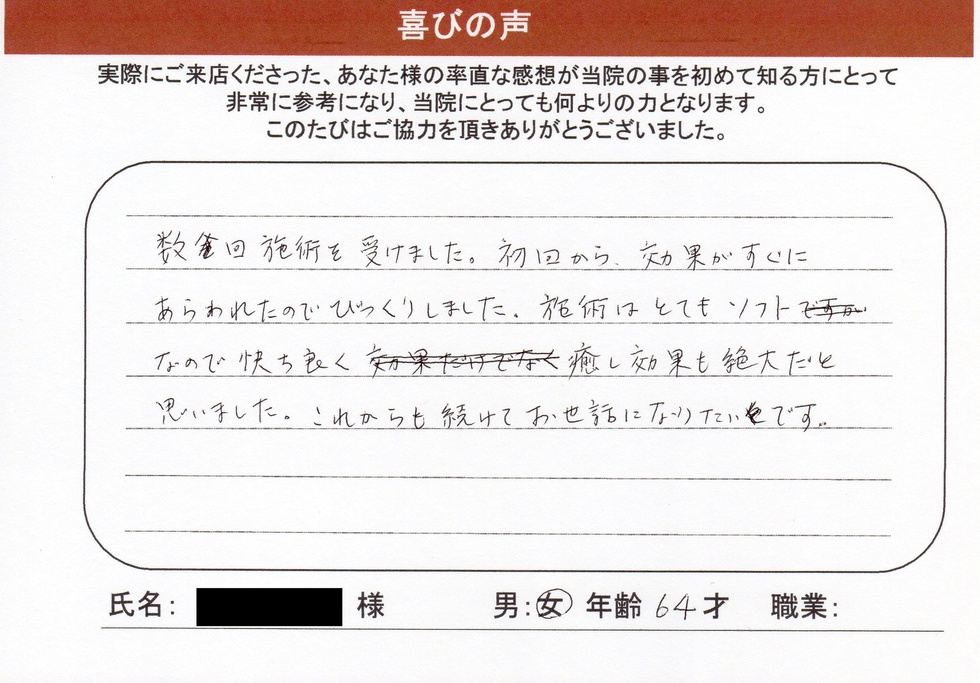 喜びの声
実際にご来店くださった、あなた様の率直な感想が当院の事を初めて知る方にとって
非常に参考になり、当院にとっても何よりの力となります。
このたびはご協力を頂きありがとうございました。
数回施術を受けました。初回から、効果がすぐに
あらわれたのでびっくりしました。施術はとてもソフトですが
なので快ち良く効果だけでなく癒し効果も絶大だと
思いました。これからも続けてお世話になりたいです。
氏名: 様 男:女 年齢 64才 職業: